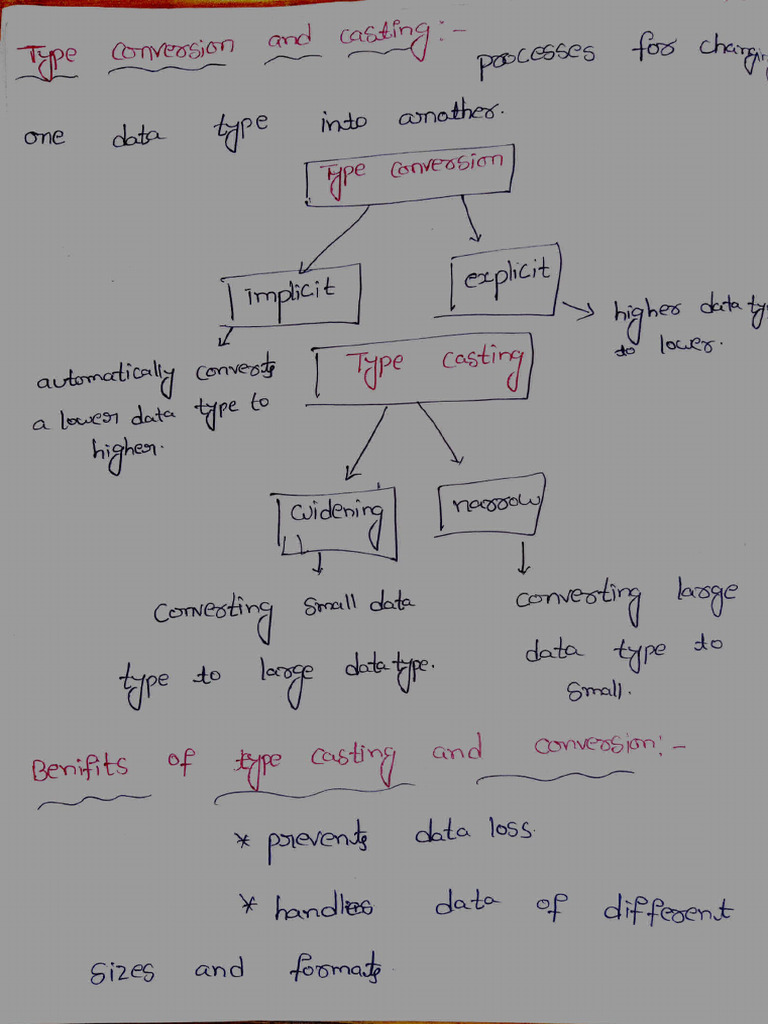 Type conversion and casting:- processes for changin
one data type into another.
Type conversion
implicit
explicit
higher data ty
to lower.
automatically converts
a lower data type to
higher.
Type casting
widening
narrow
converting small data
type to large datatype.
converting large
data type to
small.
Benifits of type casting and conversion:-
* prevents data loss.
* handles data of different
sizes and formats.